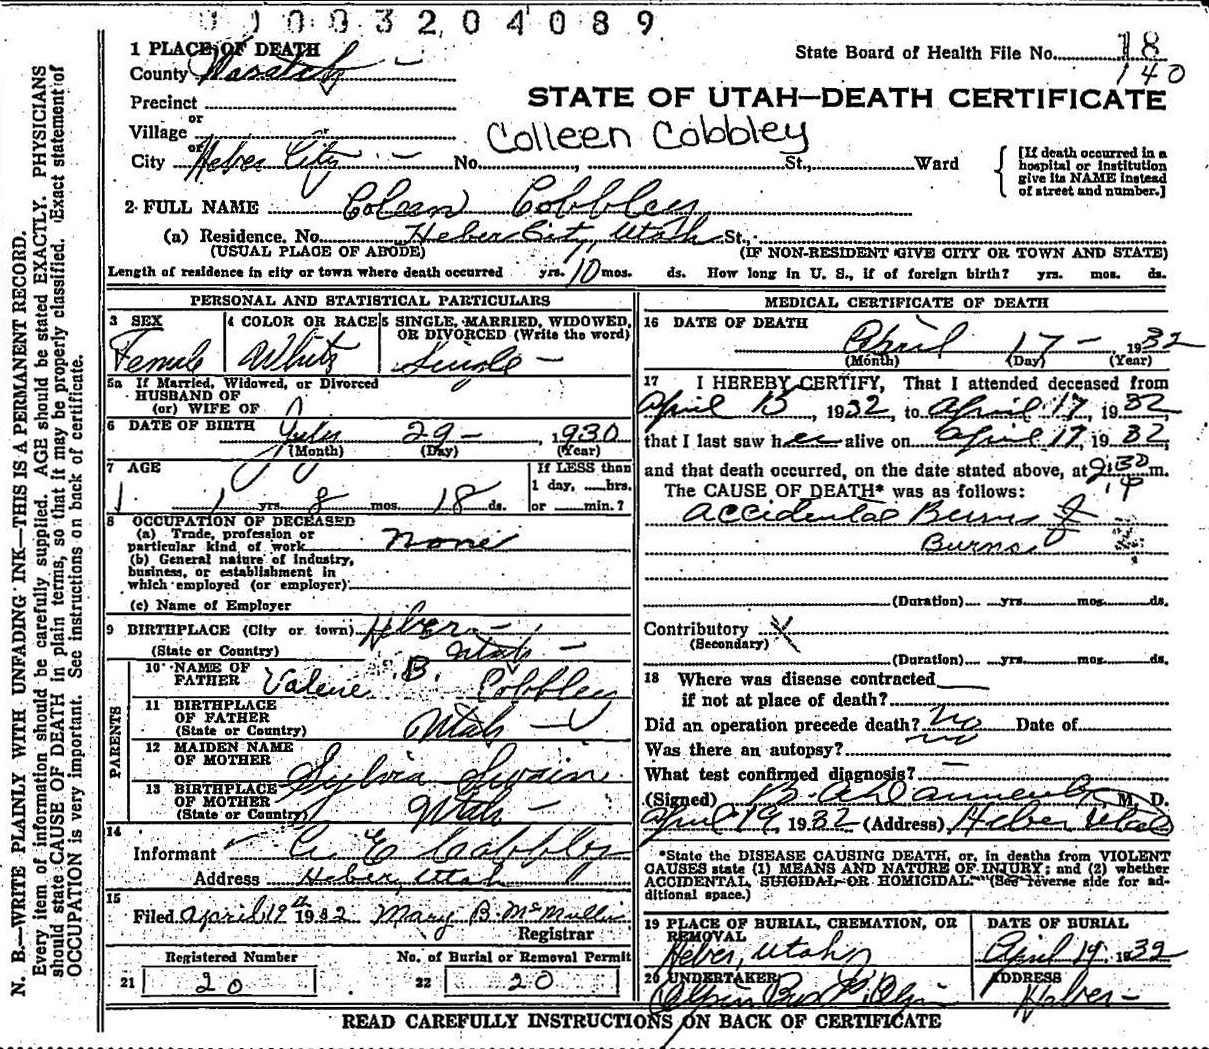 11003204089
1 PLACE OF DEATH
County Wasatch
State Board of Health File No. 18
140
Precinct
or
Village
or
City Heber City No. , St., Ward
STATE OF UTAH—DEATH CERTIFICATE
Colleen Cobbley
[If death occurred in a
hospital or institution
give its NAME instead
of street and number.]
2 FULL NAME Coleen Cobbley
(a) Residence, No. Heber City, Utah St.,
(USUAL PLACE OF ABODE) (IF NON-RESIDENT GIVE CITY OR TOWN AND STATE)
Length of residence in city or town where death occurred yrs. 10 mos. ds. How long in U. S., if of foreign birth? yrs. mos. ds.
PERSONAL AND STATISTICAL PARTICULARS
3 SEX 4 COLOR OR RACE 5 SINGLE, MARRIED, WIDOWED,
OR DIVORCED (Write the word)
Female White Single
5a If Married, Widowed, or Divorced
HUSBAND OF
(or) WIFE OF
6 DATE OF BIRTH July 29 - , 1930
(Month) (Day) (Year)
7 AGE If LESS than
1 day, hrs.
1 yrs. 8 mos. 18 ds. or min.?
8 OCCUPATION OF DECEASED
(a) Trade, profession or
particular kind of work none
(b) General nature of industry,
business, or establishment in
which employed (or employer)
(c) Name of Employer
9 BIRTHPLACE (City or town) Heber -
(State or Country) Utah -
PARENTS
10 NAME OF
FATHER B. Cobbley
11 BIRTHPLACE
OF FATHER
(State or Country) Utah
12 MAIDEN NAME
OF MOTHER Sylvia Swain
13 BIRTHPLACE
OF MOTHER
(State or Country) Utah -
14
Informant E Cobbley
Address Heber, Utah
15
Filed April 19th 1932 Mary B. McMullin
Registrar
Registered Number No. of Burial or Removal Permit
21 20 22 20
MEDICAL CERTIFICATE OF DEATH
16 DATE OF DEATH
April 17 - , 1932
(Month) (Day) (Year)
17 I HEREBY CERTIFY, That I attended deceased from
April , 1932, to April 17, 1932,
that I last saw her alive on April 17, 1932,
and that death occurred, on the date stated above, at :30 m.
P
The CAUSE OF DEATH* was as follows:
Accidental Burns
Burns
(Duration) yrs. mos. ds.
Contributory X
(Secondary)
(Duration) yrs. mos. ds.
18 Where was disease contracted
if not at place of death?
Did an operation precede death? No Date of
Was there an autopsy? no
What test confirmed diagnosis? -
(Signed) M. D.
April 19, 1932 (Address) Heber Utah
*State the DISEASE CAUSING DEATH, or, in deaths from VIOLENT
CAUSES state (1) MEANS AND NATURE OF INJURY; and (2) whether
ACCIDENTAL, SUICIDAL OR HOMICIDAL. (See reverse side for ad-
ditional space.)
19 PLACE OF BURIAL, CREMATION, OR
REMOVAL
Heber, Utah
DATE OF BURIAL
April 19, 1932
20 UNDERTAKER
ADDRESS
Heber -
READ CAREFULLY INSTRUCTIONS ON BACK OF CERTIFICATE
N. B.—WRITE PLAINLY WITH UNFADING INK—THIS IS A PERMANENT RECORD.
Every item of information should be carefully supplied. AGE should be stated EXACTLY. PHYSICIANS
should state CAUSE OF DEATH in plain terms, so that it may be properly classified. Exact statement of
OCCUPATION is very important. See instructions on back of certificate.